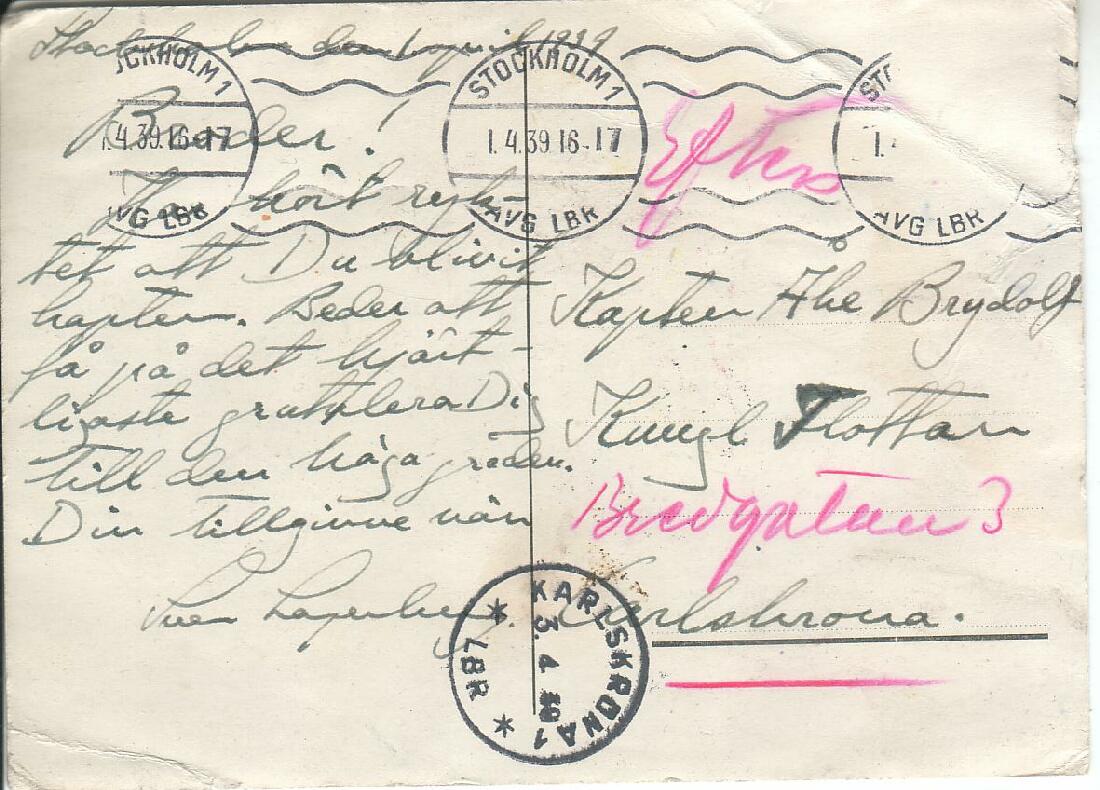 Stockholm den 1 april 1939
STOCKHOLM 1
1.4.39.16-17
AVG LBR
STOCKHOLM 1
1.4.39 16-17
AVG LBR
STO
1.4
AVG LBR
Broder!
Har hört ryk-
tet att Du blivit
kapten. Beder att
få på det hjärt-
ligaste gratulera Dig
till den höga graden.
Din tillgivne vän
Sven Lagerberg.
Efters
Kapten Åke Brydolf
Kungl Flottan
Bredgatan 3
Karlskrona.
KARLSKRONA 1
3. 4. 39
* LBR *